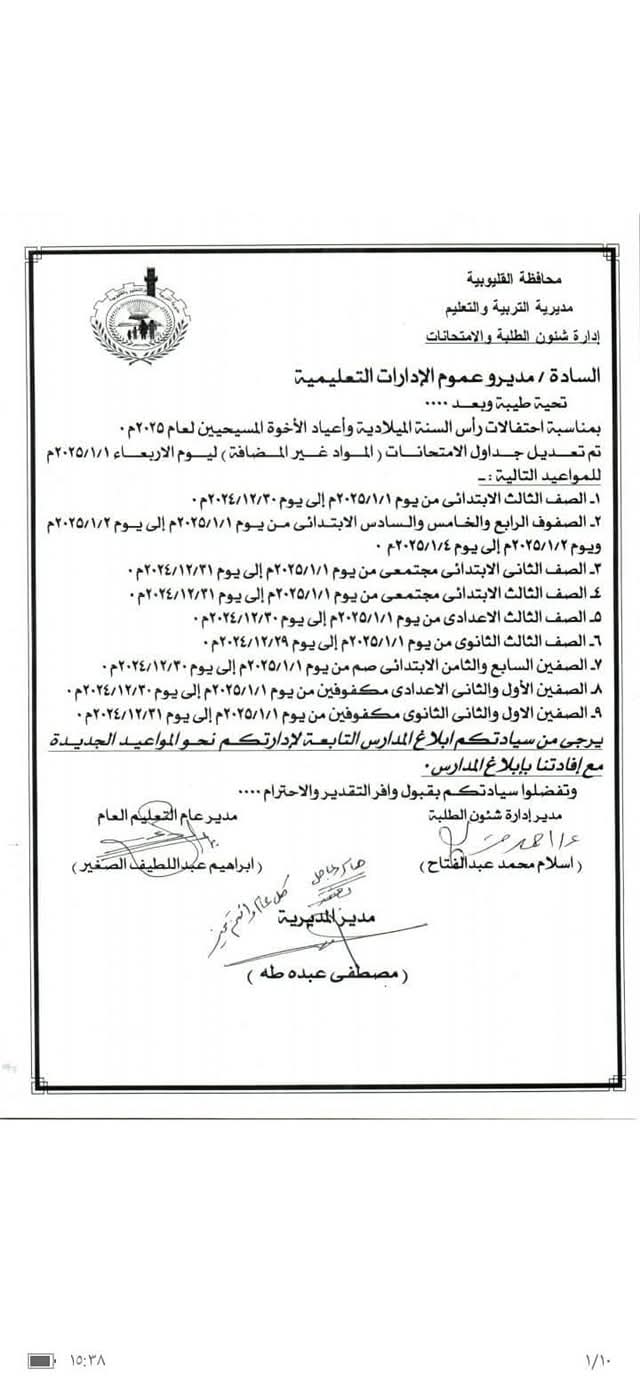 محافظة القليوبية
مديرية التربية والتعليم
إدارة شئون الطلبة والامتحانات
السادة / مديرو عموم الإدارات التعليمية
تحية طيبة وبعد ....
بمناسبة احتفالات رأس السنة الميلادية وأعياد الأخوة المسيحيين لعام ٢٠٢٥م ٠
تم تعديل جداول الامتحانات ( المواد غير المضافة ) ليوم الاربعاء ٢٠٢٥/١/١م
للمواعيد التالية :ـ
١ـ الصف الثالث الابتدائى من يوم ٢٠٢٥/١/١م إلى يوم ٢٠٢٤/١٢/٣٠م ٠
٢ـ الصفوف الرابع والخامس والسادس الابتدائى من يوم ٢٠٢٥/١/١م إلى يوم ٢٠٢٥/١/٢م
ويوم ٢٠٢٥/١/٢م إلى يوم ٢٠٢٥/١/٤م ٠
٣ـ الصف الثانى الابتدائى مجتمعى من يوم ٢٠٢٥/١/١م إلى يوم ٢٠٢٤/١٢/٣١م ٠
٤ـ الصف الثالث الابتدائى مجتمعى من يوم ٢٠٢٥/١/١م إلى يوم ٢٠٢٤/١٢/٣١م ٠
٥ـ الصف الثالث الاعدادى من يوم ٢٠٢٥/١/١م إلى يوم ٢٠٢٤/١٢/٣٠م ٠
٦ـ الصف الثالث الثانوى من يوم ٢٠٢٥/١/١م إلى يوم ٢٠٢٤/١٢/٢٩م ٠
٧ـ الصفين السابع والثامن الابتدائى صم من يوم ٢٠٢٥/١/١م إلى يوم ٢٠٢٤/١٢/٣٠م ٠
٨ـ الصفين الأول والثانى الاعدادى مكفوفين من يوم ٢٠٢٥/١/١م إلى يوم ٢٠٢٤/١٢/٣٠م ٠
٩ـ الصفين الاول والثانى الثانوى مكفوفين من يوم ٢٠٢٥/١/١م إلى يوم ٢٠٢٤/١٢/٣١م ٠
يرجى من سيادتكم ابلاغ المدارس التابعة لإدارتكم نحو المواعيد الجديدة
مع إفادتنا بإبلاغ المدارس ٠
وتفضلوا سيادتكم بقبول وافر التقدير والاحترام ....
مدير إدارة شئون الطلبة
مدير عام التعليم العام
( اسلام محمد عبدالفتاح )
( ابراهيم عبداللطيف الصغير )
كل عام وانتم بخير
مدير المديرية
( مصطفى عبده طه )
١٥:٣٨
١/١٠